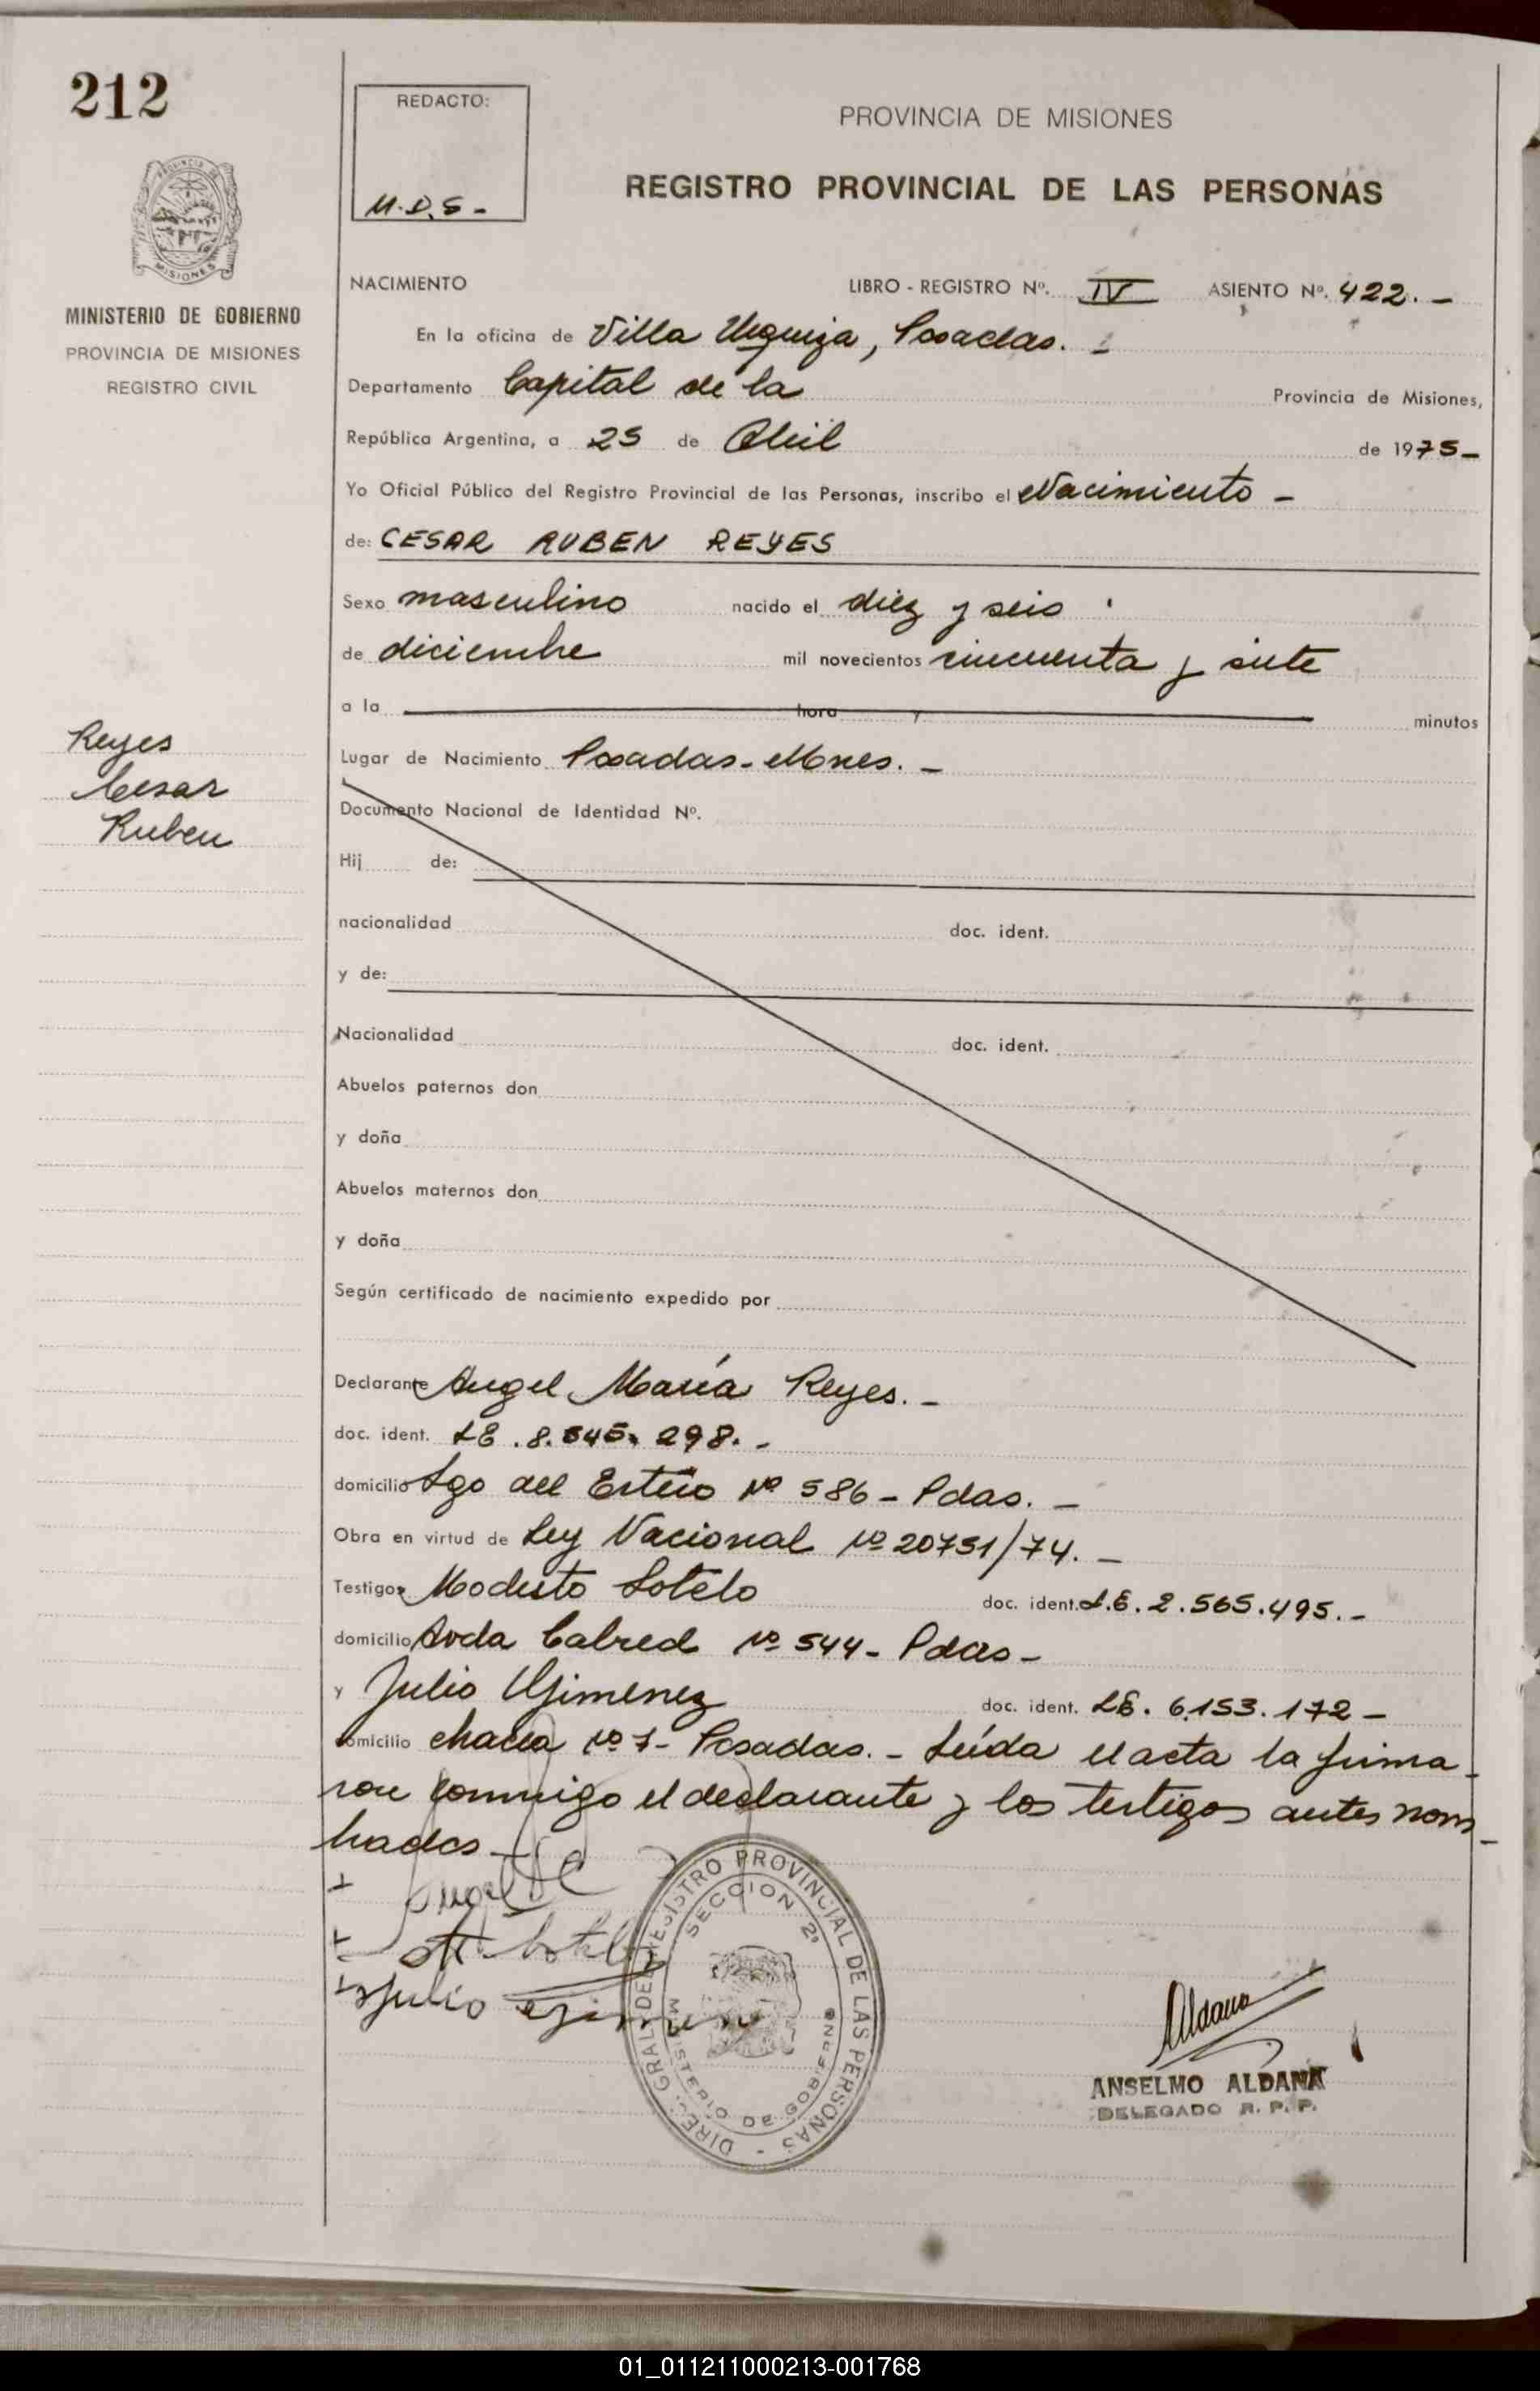 212
REDACTO:
M.D.S-
PROVINCIA DE MISIONES
REGISTRO PROVINCIAL DE LAS PERSONAS
PROVINCIA DE
MISIONES
MINISTERIO DE GOBIERNO
PROVINCIA DE MISIONES
REGISTRO CIVIL
NACIMIENTO LIBRO - REGISTRO Nº. IV ASIENTO Nº. 422. -
En la oficina de Villa Urquiza, Posadas. -
Departamento Capital de la Provincia de Misiones,
República Argentina, a 25 de Abril de 1975-
Yo Oficial Público del Registro Provincial de las Personas, inscribo el Nacimiento -
de: CESAR RUBEN REYES
Sexo masculino nacido el diez y seis
de diciembre mil novecientos cincuenta y siete
a la hora y minutos
Reyes
Cesar
Ruben
Lugar de Nacimiento Posadas - Mnes. -
Documento Nacional de Identidad Nº.
Hij de:
nacionalidad doc. ident.
y de:
Nacionalidad doc. ident.
Abuelos paternos don
y doña
Abuelos maternos don
y doña
Según certificado de nacimiento expedido por
Declarante Angel María Reyes. -
doc. ident. LE. 8.545. 298. -
domicilio Sgo del Estero Nº 586 - Pdas. -
Obra en virtud de Ley Nacional Nº 20751/74. -
Testigos Modesto Sotelo doc. ident. L.E. 2.565.495. -
domicilio Avda Cabred Nº 544 - Pdas -
y Julio Gimenez doc. ident. LE. 6.153.172 -
domicilio chacra Nº 1 - Posadas. - Leída el acta la firma-
ron conmigo el declarante y los testigos antes nom-
brados -
Julio Gimenez
DIREC. GRAL. DEL REGISTRO PROVINCIAL DE LAS PERSONAS -
SECCION 2ª
MINISTERIO DE GOBIERNO
Aldana
ANSELMO ALDANA
DELEGADO R. P. P.
01_011211000213-001768